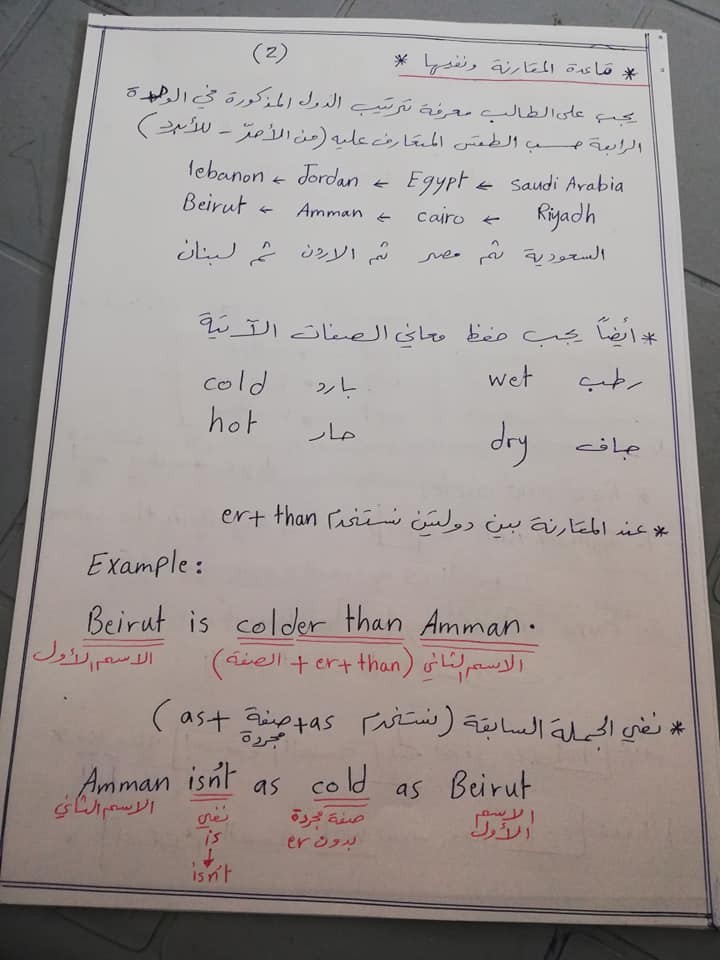 (2)
* قاعدة المقارنة ونفيها *
يجب على الطالب معرفة ترتيب الدول المذكورة في الوحدة
الرابعة حسب الطقس المتعارف عليه (من الأحرّ - للأبرد)
lebanon ← Jordan ← Egypt ← saudi Arabia
Beirut ← Amman ← cairo ← Riyadh
السعودية ثم مصر ثم الاردن ثم لبنان
* أيضاً يجب حفظ معاني الصفات الآتية
رطب wet بارد cold
جاف dry حار hot
* عند المقارنة بين دولتين نستخدم er+ than
Example:
Beirut is colder than Amman.
الاسم الأول (الصفة + er + than) الاسم الثاني
* نفي الجملة السابقة (نستخدم as + صفة مجردة + as)
Amman isn't as cold as Beirut
الاسم الثاني نفي صفة مجردة الاسم
is بدون er الأول
↓
isn't